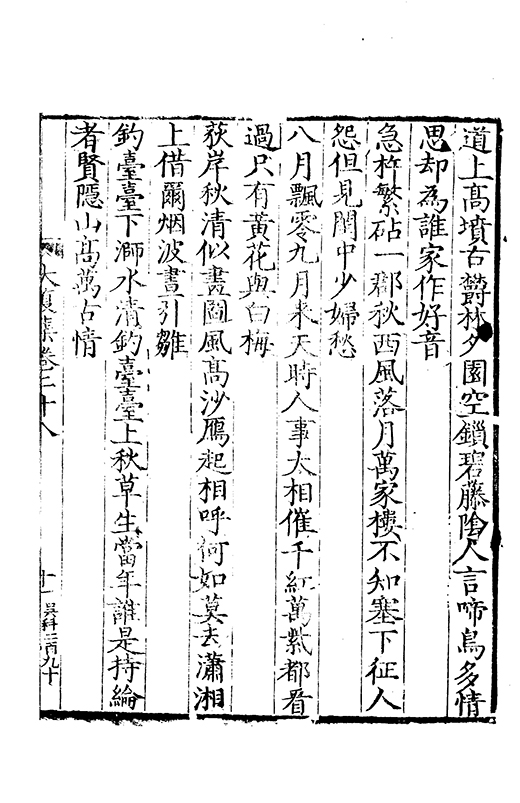 道上高墳古欝林夕園空鎖碧藤陰人言啼鳥多情
思却為誰家作好音
急杵繁砧一郡秋西風落月萬家樓不知塞下征人
怨但見閨中少婦愁
八月飄零九月来天時人事太相催千紅萬紫都看
過只有黃花與白梅
荻岸秋清似畫圖風高沙鴈起相呼何如莫去瀟湘
上借爾烟波畫引雛
釣臺臺下㶉水清釣臺臺上秋草生當年誰是持綸
者賢隱山高萬古情
大復集卷二十八
十一